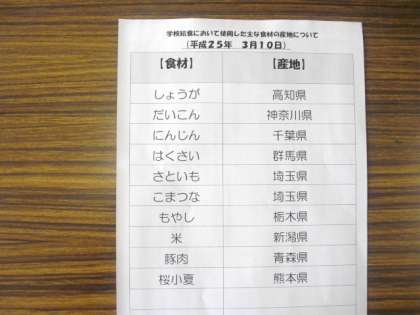 学校給食において使用した主な食材の産地について
(平成25年 3月10日)
【食材】 【産地】
しょうが 高知県
だいこん 神奈川県
にんじん 千葉県
はくさい 群馬県
さといも 埼玉県
こまつな 埼玉県
もやし 栃木県
米 新潟県
豚肉 青森県
桜小夏 熊本県